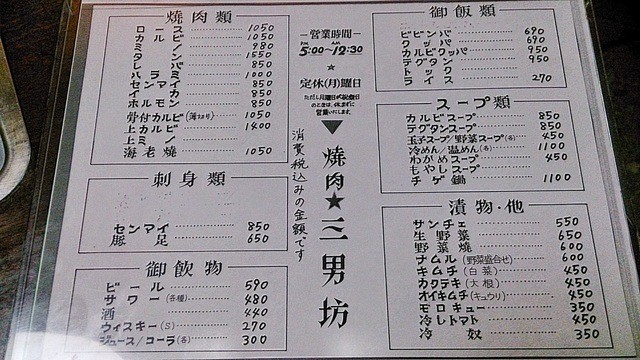 焼肉類
ロース 1050
カルビ 1050
ミノ 980
タン 1550
レバー 850
ハラミ 1000
センマイ 850
イカ 850
ホルモン 850
骨付カルビ(薄切り) 1050
上カルビ 1400
上ミノ
海老焼 1050
刺身類
センマイ 850
豚足 650
御飲物
ビール 590
サワー(各種) 480
酒 440
ウィスキー(S) 270
ジュース/コーラ(各) 300
―営業時間―
PM 5:00~AM 12:30
★
定休(月)曜日
ただし月曜日が祝祭日
のときは、休まずに
営業いたします。
焼肉★三男坊
消費税込みの金額です
御飯類
ビビンバ 690
クッパ 690
カルビクッパ 950
テグタン 950
トック
ライス 270
スープ類
カルビスープ 850
テグタンスープ 850
玉子スープ/野菜スープ(各) 450
冷めん/温めん(各) 1100
わかめスープ 450
もやしスープ
チゲ鍋 1100
漬物・他
サンチェ 550
生野菜 650
野菜焼 600
ナムル(野菜盛合せ) 600
キムチ(白菜) 450
カクテキ(大根) 450
オイキムチ(キュウリ) 450
モロキュー 350
冷しトマト 450
冷奴 350